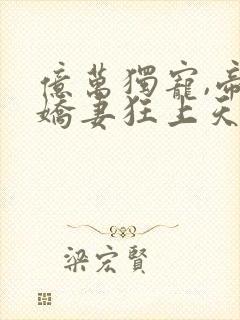 億萬獨寵,帝
嬌妻狂上天
梁宏賢